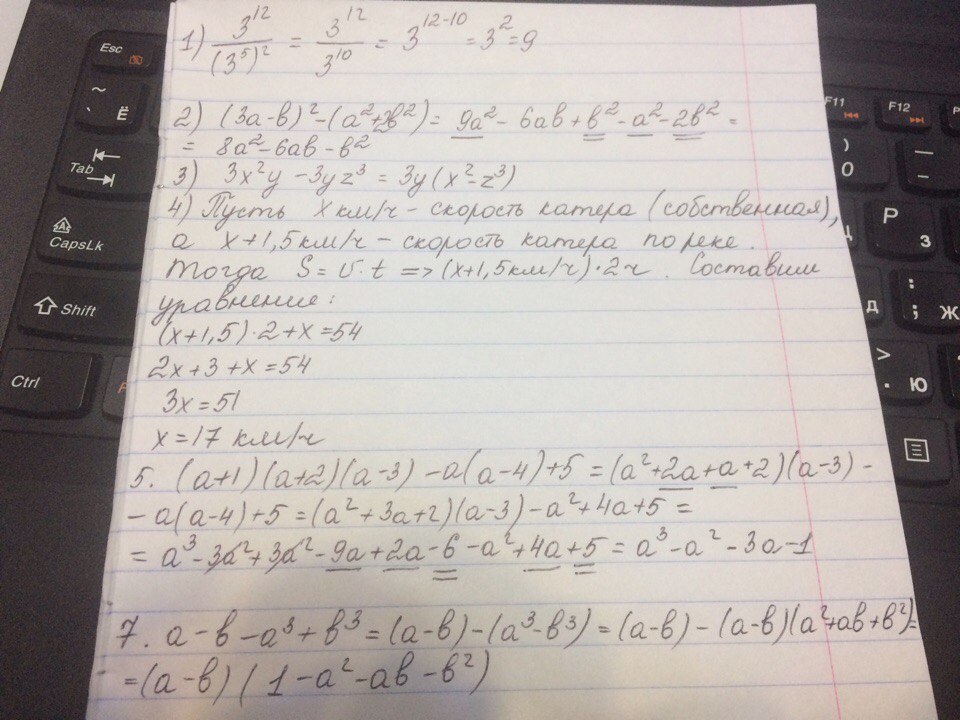 1) 3^12/(3^5)^2 = 3^12/3^10 = 3^12-10 = 3^2 = 9
2) (3a-b)^2-(a^2+2b^2) = 9a^2 - 6ab + b^2 - a^2 - 2b^2 =
= 8a^2 - 6ab - b^2
3) 3x^2y - 3yz^3 = 3y(x^2-z^3)
4) Пусть x км/ч - скорость катера (собственная),
а x+1,5 км/ч - скорость катера по реке.
Тогда S = v·t => (x+1,5 км/ч)·2ч. Составим
уравнение:
(x+1,5)·2+x=54
2x+3+x=54
3x=51
x=17 км/ч
5. (a+1)(a+2)(a-3) - a(a-4)+5 = (a^2+2a+a+2)(a-3) -
- a(a-4)+5 = (a^2+3a+2)(a-3) - a^2+4a+5 =
= a^3-3a^2+3a^2-9a+2a-6-a^2+4a+5 = a^3-a^2-3a-1
7. a-b-a^3+b^3 = (a-b)-(a^3-b^3) = (a-b)-(a-b)(a^2+ab+b^2)=
=(a-b)(1-a^2-ab-b^2)
Esc
~ ` Ё
Tab
CapsLk
Shift
Ctrl
F11
F12
) 0
_ -
Р З
Д
: ; Ж
> . Ю